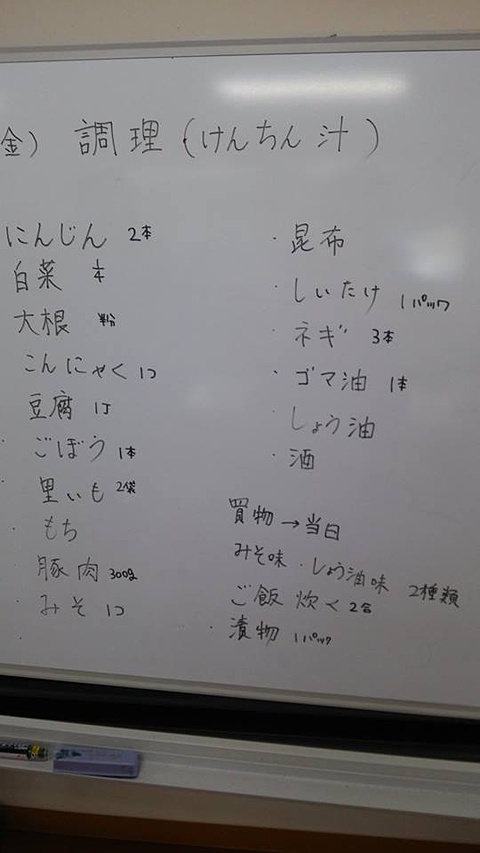 金） 調理（けんちん汁）
にんじん 2本
白菜 1/4
大根 半分
こんにゃく 1コ
豆腐 1丁
・ごぼう 1本
・里いも 2袋
・もち
・豚肉 300g
・みそ 1コ
・
・昆布
・しいたけ 1パック
・ネギ 3本
・ゴマ油 1本
・しょう油
・酒
買物→当日
みそ味・しょう油味 2種類
ご飯炊く 2合
・漬物 1パック